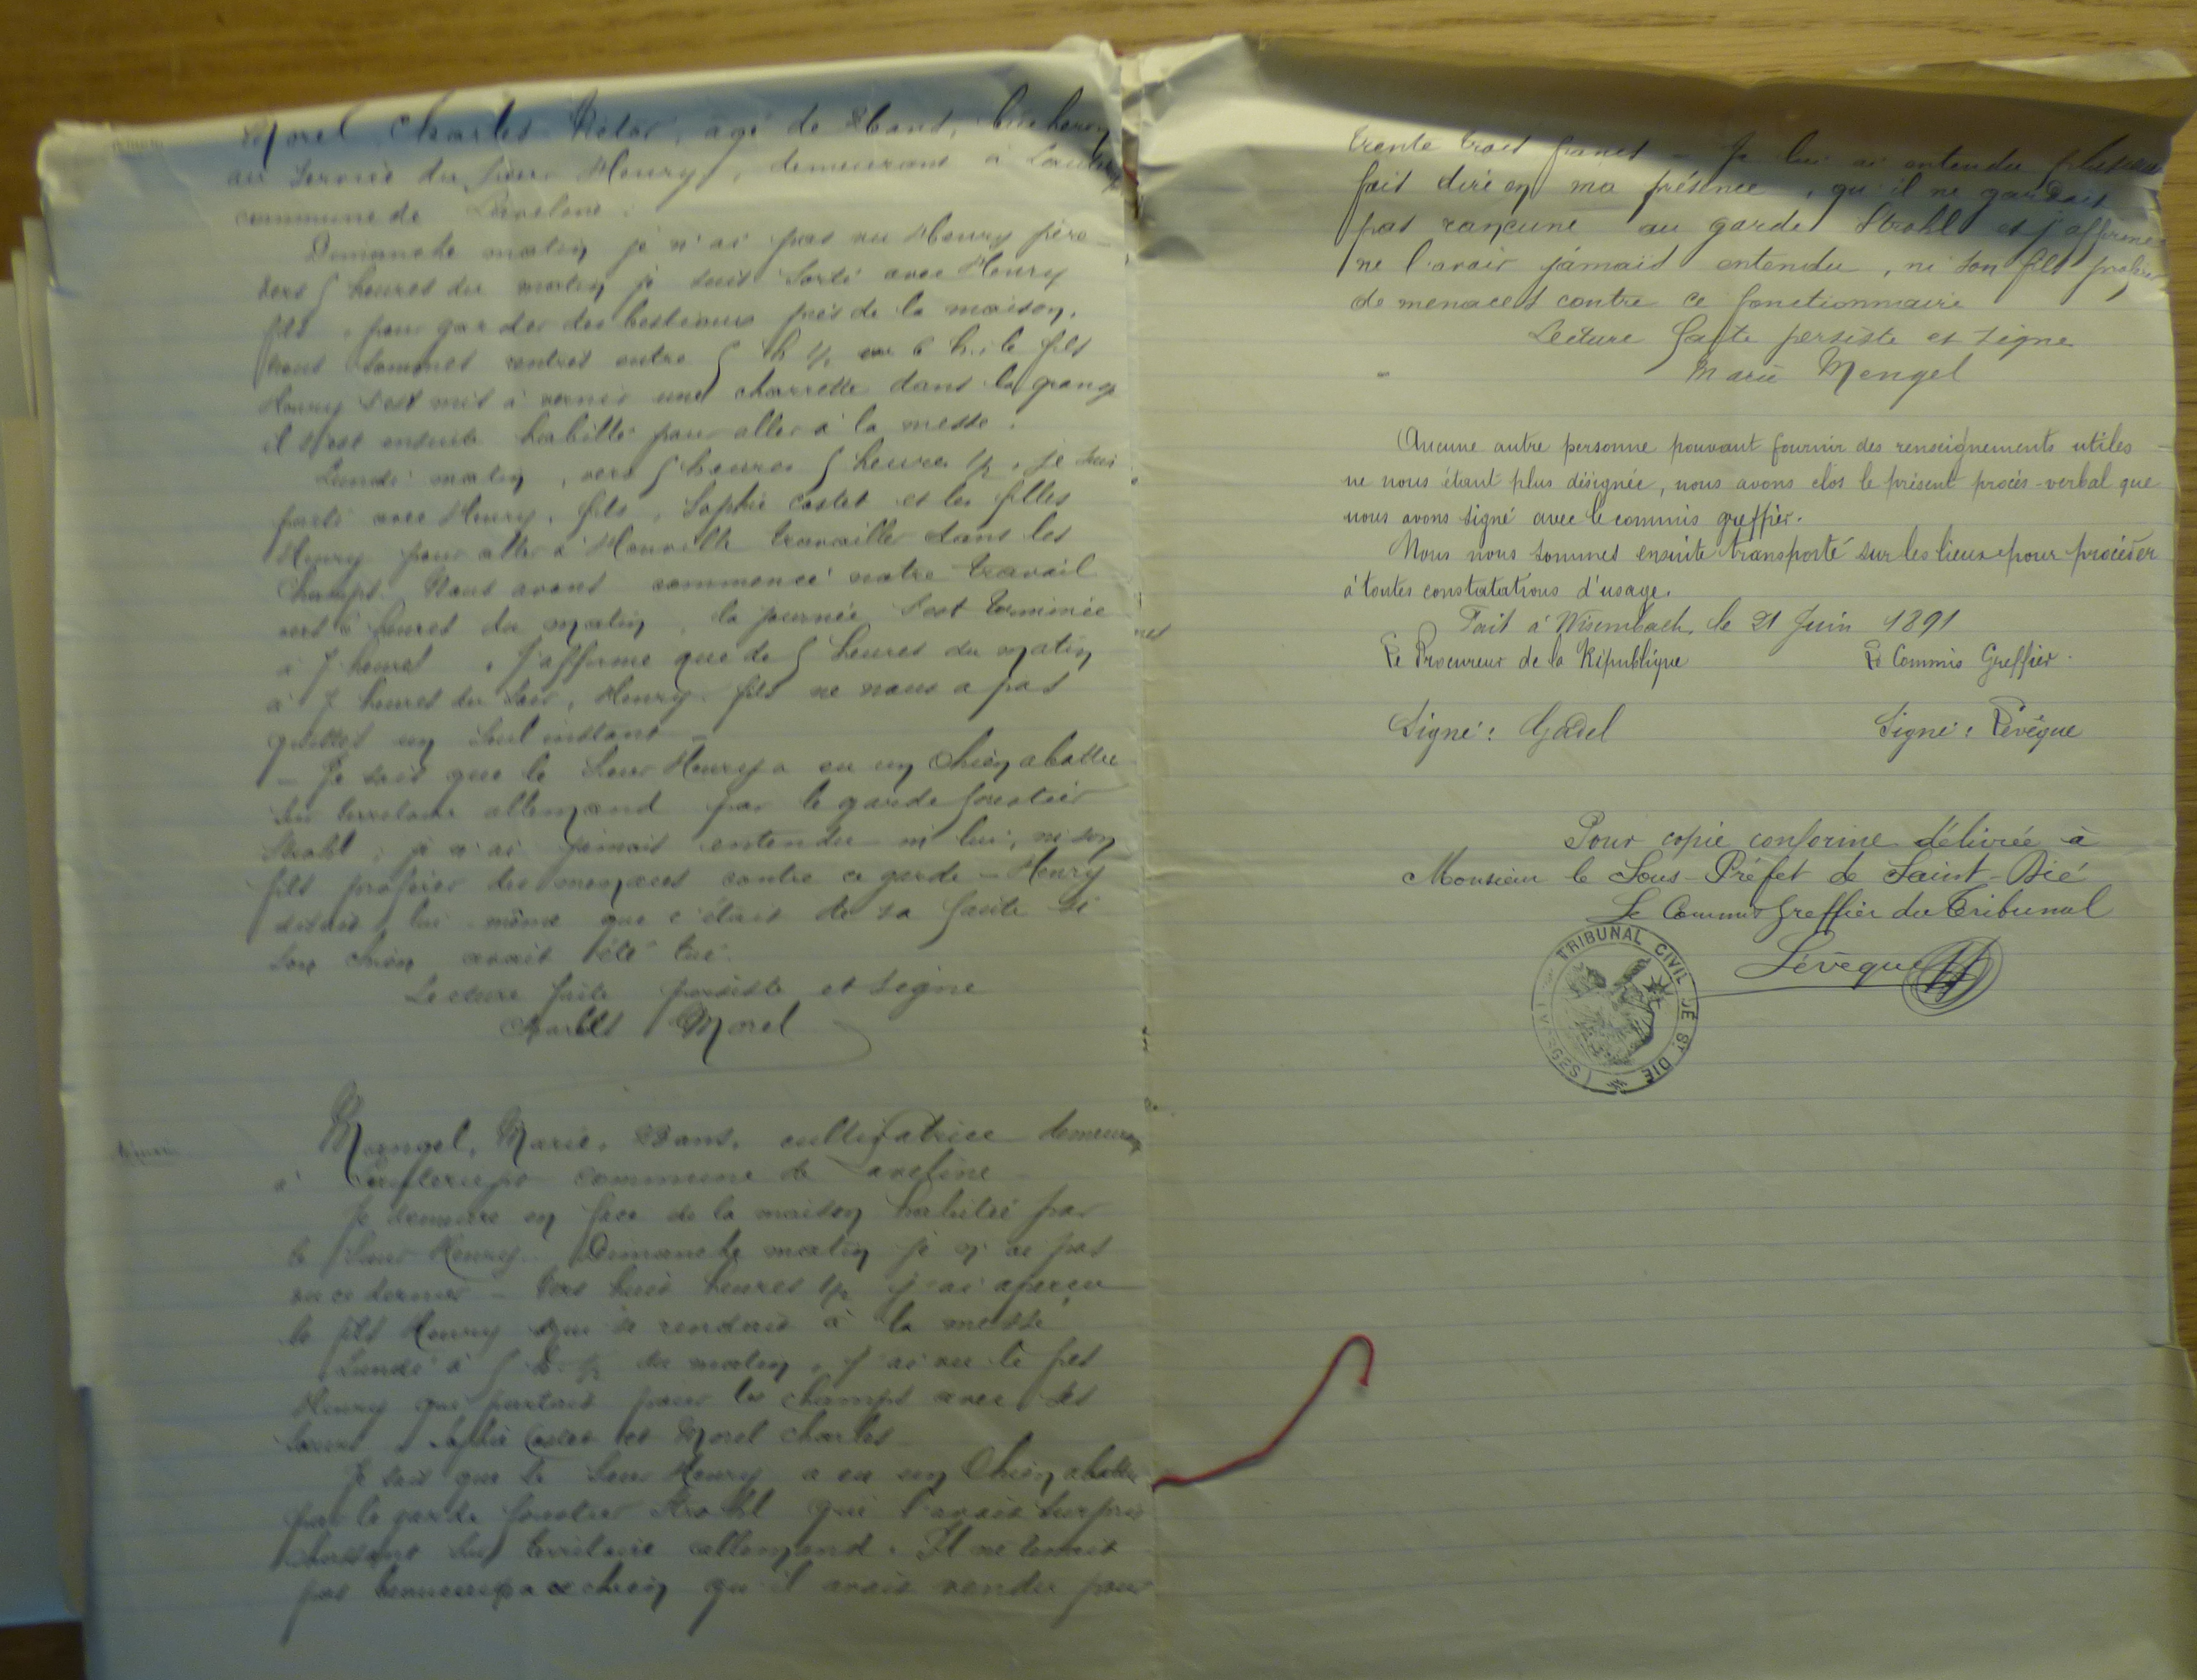 Morel Charles Victor, agé de ans, bucheron
au Service du Sieur Henry, demeurant à
commune de Laveline.
Dimanche matin je n'ai pas vu Henry père
vers 5 heures du matin je suis sorti avec Henry
fils, pour garder des bestiaux près de la maison,
nous sommes rentrés entre 5 h 1/2 6 h, le fils
Henry s'est mis à vernir une charrette dans la grange
il s'est ensuite habillé pour aller à la messe.
Lundi matin, vers 5 heures 5 heures 1/2, je suis
parti avec Henry, fils, Sophie Costet et les filles
Henry pour aller à travailler dans les
champs. Nous avons commencé notre travail
vers 6 heures du matin, la journée s'est terminée
à 7 heures. J'affirme que de 5 heures du matin
à 7 heures du soir, Henry fils ne nous a pas
quittés un seul instant –
– Je sais que le Sieur Henry a eu un chien abattu
sur territoire allemand par le garde forestier
Strohl; je n'ai jamais entendu ni lui, ni son
fils proférer des menaces contre ce garde – Henry
disait lui même que c'était de sa faute si
son chien avait été tué.
Lecture faite persiste et signe
Charles Morel
Mengel, Marie, ans, cultivatrice demeurant
à commune de Laveline –
Je demeure en face de la maison habitée par
le Sieur Henry. Dimanche matin je n'ai pas
vu ce dernier – Vers huit heures 1/2 j'ai aperçu
le fils Henry qui se rendait à la messe
Lundi à 5 h. 1/2 du matin, j'ai vu le fils
Henry qui partait pour les champs avec ses
sœurs, Sophie Costet et Morel Charles
Je sais que le Sieur Henry a eu un chien abattu
par le garde forestier Strohl qui l'avait surpris
chassant sur territoire allemand. Il ne tenait
pas beaucoup à ce chien qu'il avait vendu pour
trente trois francs – Je lui ai entendu plusieurs
fois dire en ma présence, qu'il ne gardait
pas rancune au garde Strohl et j'affirme
ne l'avoir jamais entendu, ni son fils proférer
de menaces contre ce fonctionnaire
Lecture faite persiste et signe
Marie Mengel
Aucune autre personne pouvant fournir des renseignements utiles
ne nous étant plus désignée, nous avons clos le présent procès-verbal que
nous avons signé avec le commis greffier.
Nous nous sommes ensuite transporté sur les lieux pour procéder
à toutes constatations d'usage.
Fait à Wisembach, le 21 Juin 1891
Le Procureur de la République Le Commis Greffier.
Signé: Gadel Signé: Lévêque
Pour copie conforme délivrée à
Monsieur le Sous-Préfet de Saint-Dié
Le Commis Greffier du Tribunal
Lévêque
TRIBUNAL CIVIL DE ST. DIÉ (VOSGES)